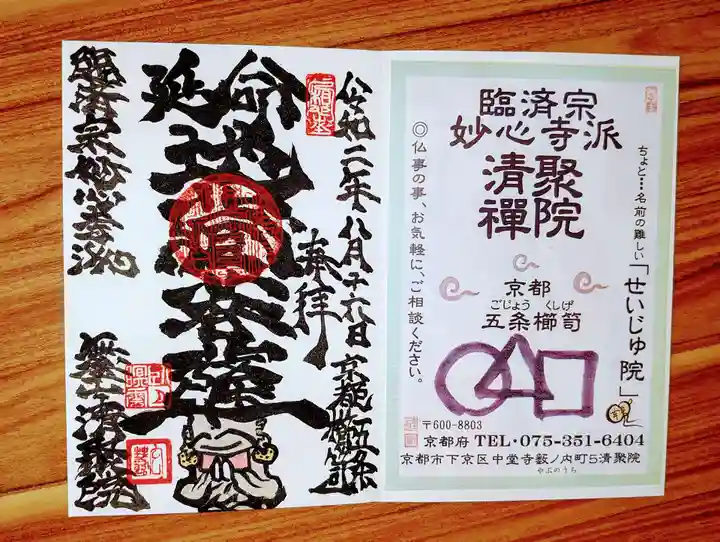 奉拝
令和二年八月十六日 京都五条櫛笥
延命
地蔵
菩薩
臨済宗妙心寺派
清聚院
臨済宗
妙心寺派
清聚
禪院
ちょと…名前の難しい「せいじゅ院」
◎仏事の事、お気軽に、ご相談ください。
京都
ごじょう くしげ
五条櫛笥
〒600-8803
京都府 TEL・075-351-6404
京都市下京区中堂寺藪ノ内町5清聚院
やぶのうち